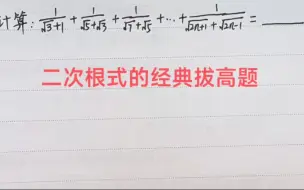 计算: \frac{1}{\sqrt{3}+1} + \frac{1}{\sqrt{5}+\sqrt{3}} + \frac{1}{\sqrt{7}+\sqrt{5}} + \cdots + \frac{1}{\sqrt{2n+1}+\sqrt{2n-1}} = ____
二次根式的经典拔高题